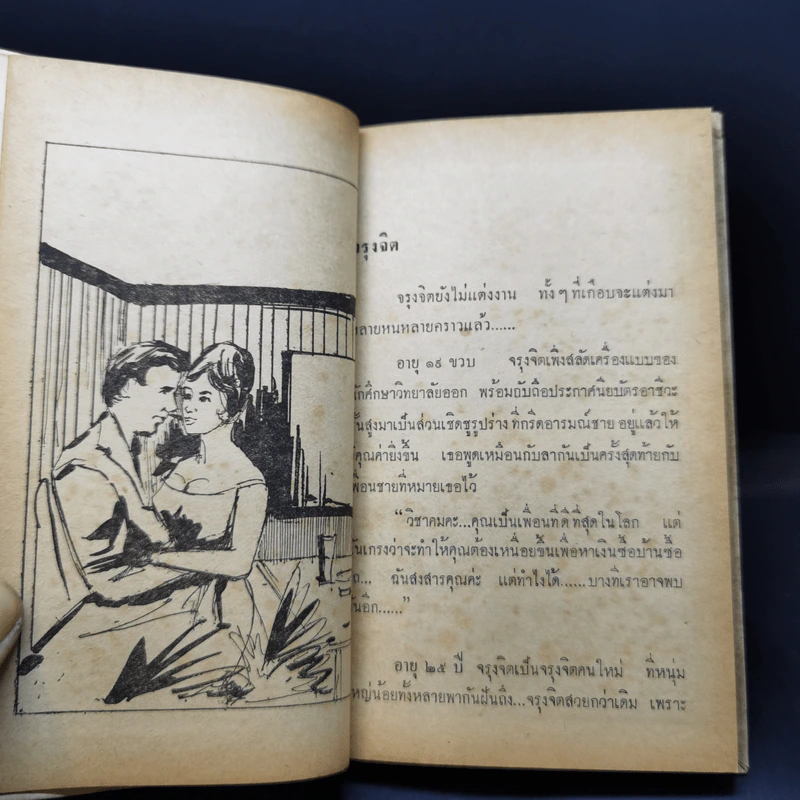 จรุงจิต
จรุงจิตยังไม่แต่งงาน ทั้ง ๆ ที่เกือบจะแต่งมา
หลายหนหลายคราวแล้ว......
อายุ ๑๙ ขวบ จรุงจิตเพิ่งสลัดเครื่องแบบของ
นักศึกษาวิทยาลัยออก พร้อมกับถือประกาศนียบัตรอาชีวะ
ชั้นสูงมาเป็นส่วนเชิดชูรูปร่าง ที่กรีดอารมณ์ชาย อยู่แล้วให้
มีคุณค่ายิ่งขึ้น เธอพูดเหมือนกับลากันเป็นครั้งสุดท้ายกับ
เพื่อนชายที่หมายเธอไว้
“วิชาคมคะ...คุณเป็นเพื่อนที่ดีที่สุดในโลก แต่
ฉันเกรงว่าจะทำให้คุณต้องเหนื่อยขึ้นเพื่อหาเงินซื้อบ้านซื้อ
รถ... ฉันสงสารคุณค่ะ แต่ทำไงได้......บางทีเราอาจพบ
กันอีก......”
อายุ ๒๕ ปี จรุงจิตเป็นจรุงจิตคนใหม่ ที่หนุ่ม
ใหญ่น้อยทั้งหลายพากันฝันถึง...จรุงจิตสวยกว่าเดิม เพราะ